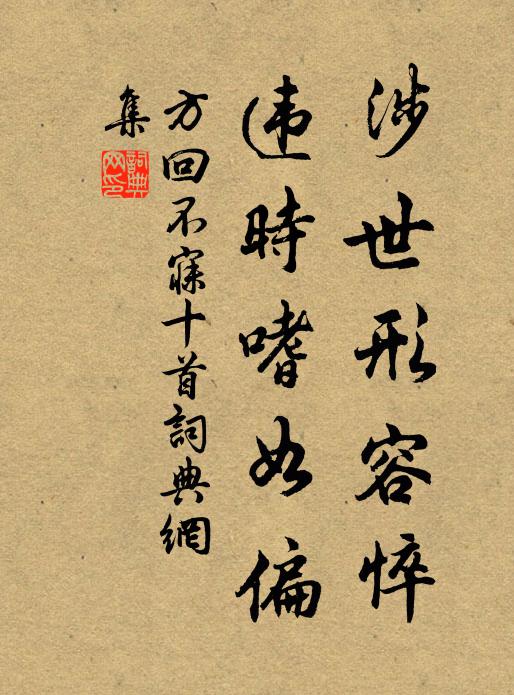 涉世形容悴
违時嗜好偏
方回不寐十首詞典網
集
詞典网印